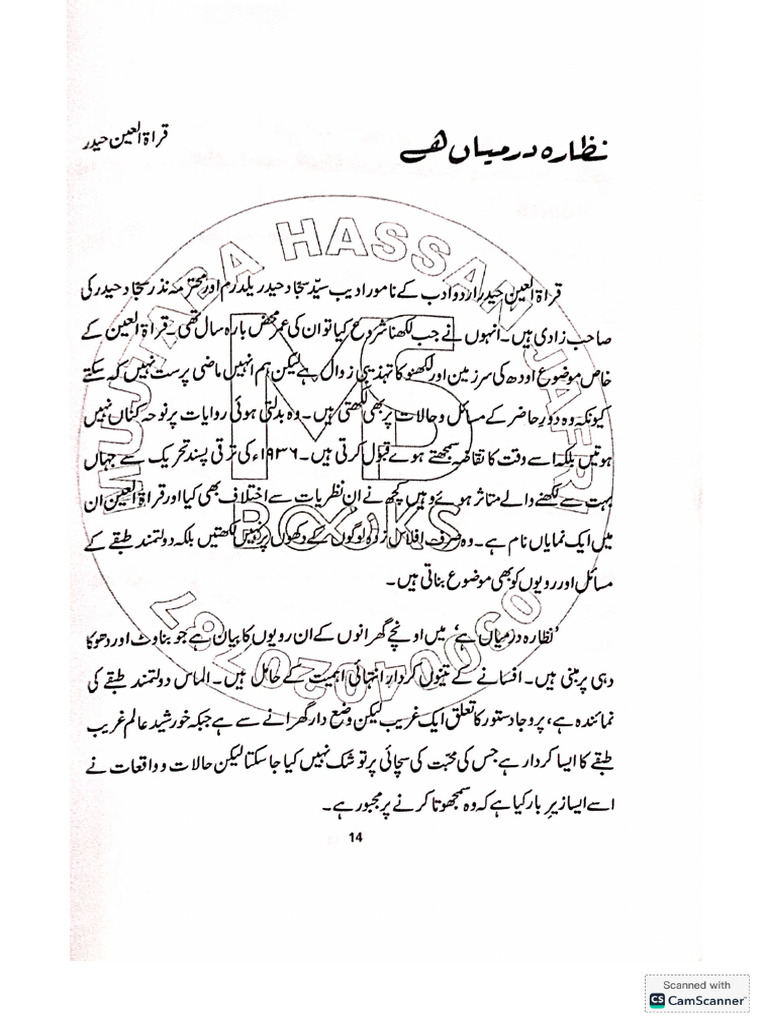 نظارہ درمیاں ھے
قراۃ العین حیدر
قراۃ العین حیدر اردو ادب کے نامور ادیب سیّد سجاد حیدر یلدرم اور محترمہ نذر سجاد حیدر کی
صاحب زادی ہیں۔ انہوں نے جب لکھنا شروع کیا تو ان کی عمر محض بارہ سال تھی۔ قراۃ العین کے
خاص موضوع اودھ کی سرزمین اور لکھنو کا تہذیبی زوال ہے لیکن ہم انہیں ماضی پرست نہیں کہہ سکتے
کیونکہ وہ دورِ حاضر کے مسائل و حالات پر بھی لکھتی ہیں۔ وہ بدلتی ہوئی روایات پر نوحہ کناں نہیں
ہوتیں بلکہ اسے وقت کا تقاضہ سمجھتے ہوے قبول کرتی ہیں۔ ۱۹۳۶ء کی ترقی پسند تحریک سے جہاں
بہت سے لکھنے والے متاثر ہوئے وہیں کچھ نے ان نظریات سے اختلاف بھی کیا اور قراۃ العین ان
میں ایک نمایاں نام ہے۔ وہ صرف افلاس زدہ لوگوں کے دکھوں پر نہیں لکھتیں بلکہ دولتمند طبقے کے
مسائل اور رویوں کو بھی موضوع بناتی ہیں۔
’نظارہ درمیاں ہے‘ میں اونچے گھرانوں کے ان رویوں کا بیان ہے جو بناوٹ اور دھوکا
دہی پر مبنی ہیں۔ افسانے کے تینوں کردار انتہائی اہمیت کے حامل ہیں۔ الماس دولتمند طبقے کی
نمائندہ ہے، پروجا دستور کا تعلق ایک غریب لیکن وضع دار گھرانے سے ہے جبکہ خورشید عالم غریب
طبقے کا ایسا کردار ہے جس کی محبت کی سچائی پر تو شک نہیں کیا جا سکتا لیکن حالات و واقعات نے
اسے ایسا زیرِ بار کیا ہے کہ وہ سمجھوتا کرنے پر مجبور ہے۔
14
MUJTABA HASSAN JAFRI
MS
BOOKS
Scanned with
CS CamScanner